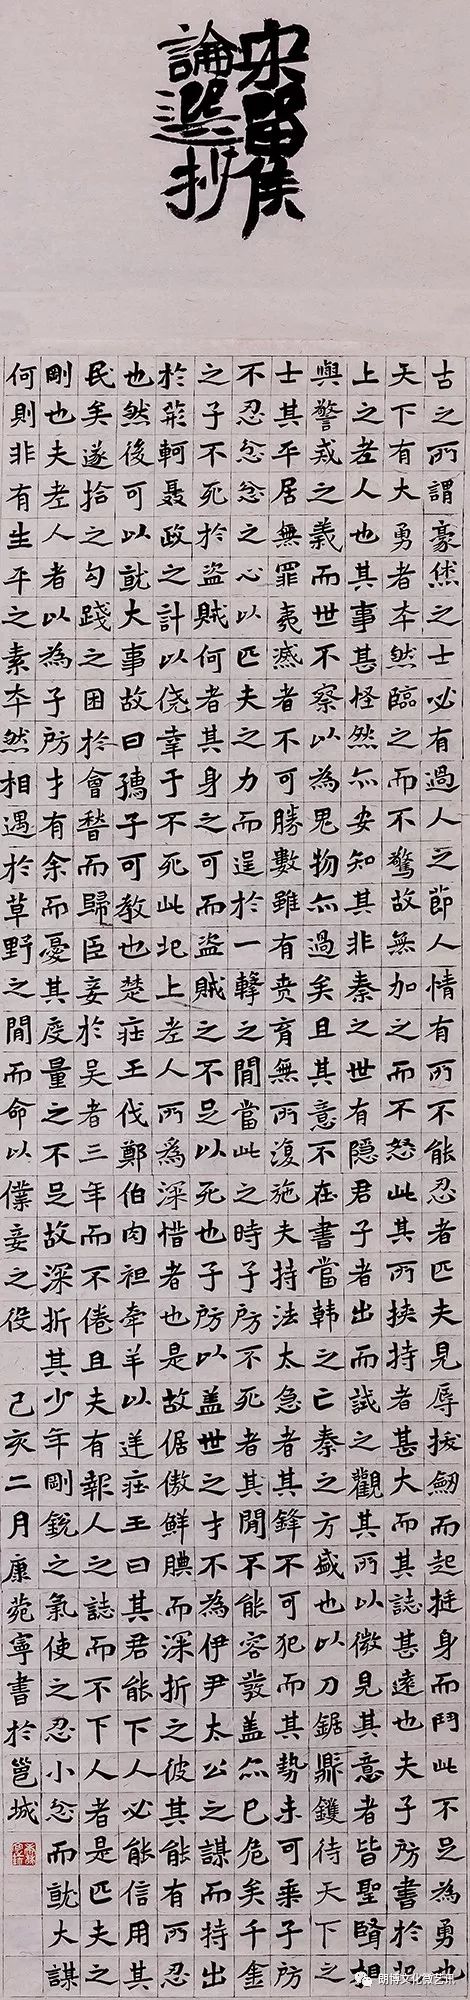 宋留侯
論選抄
古之所謂豪傑之士必有過人之節人情有所不能忍者匹夫見辱拔劍而起挺身而鬥此不足為勇也
天下有大勇者卒然臨之而不驚故無加之而不怒此其所挾持者甚大而其誌甚遠也夫子房書於圯
上之老人也其事甚怪然亦安知其非秦之世有隱君子者出而試之觀其所以微見其意者皆聖賢相
與警戒之義而世不察以為鬼物亦過矣且其意不在書當韓之亡秦之方盛也以刀鋸鼎鑊待天下之
士其平居無罪夷滅者不可勝數雖有賁育無所復施夫持法太急者其鋒不可犯而其勢未可乘子房
不忍忿忿之心以匹夫之力而逞於一擊之間當此之時子房不死者其間不能容發蓋亦已危矣千金
之子不死於盜賊何者其身之可而盜賊之不足以死也子房以蓋世之才不為伊尹太公之謀而持出
於荊軻聶政之計以僥幸于不死此圯上老人所為深惜者也是故倨傲鮮腆而深折之彼其能有所忍
也然後可以就大事故曰孺子可教也楚莊王伐鄭伯肉袒牽羊以逆莊王曰其君能下人必能信用其
民矣遂捨之勾踐之困於會稽而歸臣妾於吳者三年而不倦且夫有報人之誌而不下人者是匹夫之
剛也夫老人者以為子房才有余而憂其度量之不足故深折其少年剛銳之氣使之忍小忿而就大謀
何則非有生平之素卒然相遇於草野之間而命以僕妾之役 己亥二月康菀寧書於邕城
朗博文化微艺讯